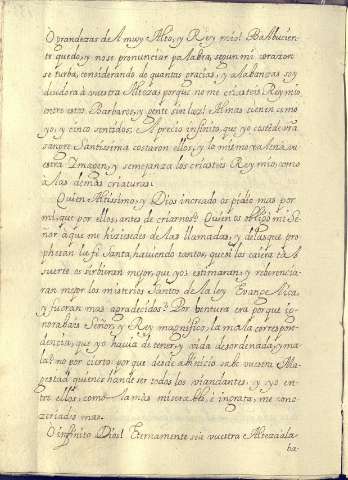 O grandezas de A muy Alto, y Rey mio! Balbucien
te quedo, y no se pronunciar palabra, segun mi corazon
se turba, considerando de quantas gracias, y alabanzas soy
deudora à vuestra Alteza; porque no me criasteis Rey mio
entre estos Barbaros, y gente sin luz! Almas tienen como
yo, y cinco sentidos: A precio infinito, que yo costè de vrã
sangre Santissima costaron ellos, y lo mismo, ya la
estra Imagen, y semejanza los criasteis Rey mio, como
à las demas criaturas.
Quien Altissimo, y Dios increado os pidio mas por
mi, que por ellos, antes de criarnos? Quien os obligò mi Se
ñor à que me hiziesedes de las llamadas, y de las que pro
phesan la fe Santa, haviendo tantos, que si los caiera la
suerte os sirbieran mejor, que yo; estimaran, y reberencia
ran mejor los misterios Santos de la ley Evangelica,
y fueran mas agradecidos? Por bentura era porque ig
norabais Señor, y Rey magnifico, la mala correspon
dencia, que yo havia de tener, y vida desordenada, y ma
la? no por cierto porque desde abeterno sabe vuestra Ma
gestad quienes han de ser todos los viandantes, y yo en
tre ellos, como la mas miserable, è ingrata, me cono
ziades mas.
O infinito Dios! Eternamente sea vuestra Alteza ala
ba